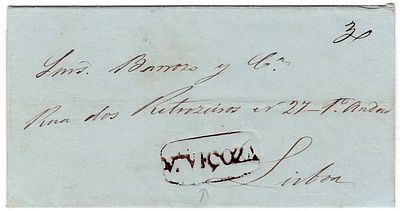 30
Snrs. Barros y Cª
Rua dos Retrozeiros nº 27-1º Andar
V. VIÇOZA
Lisboa